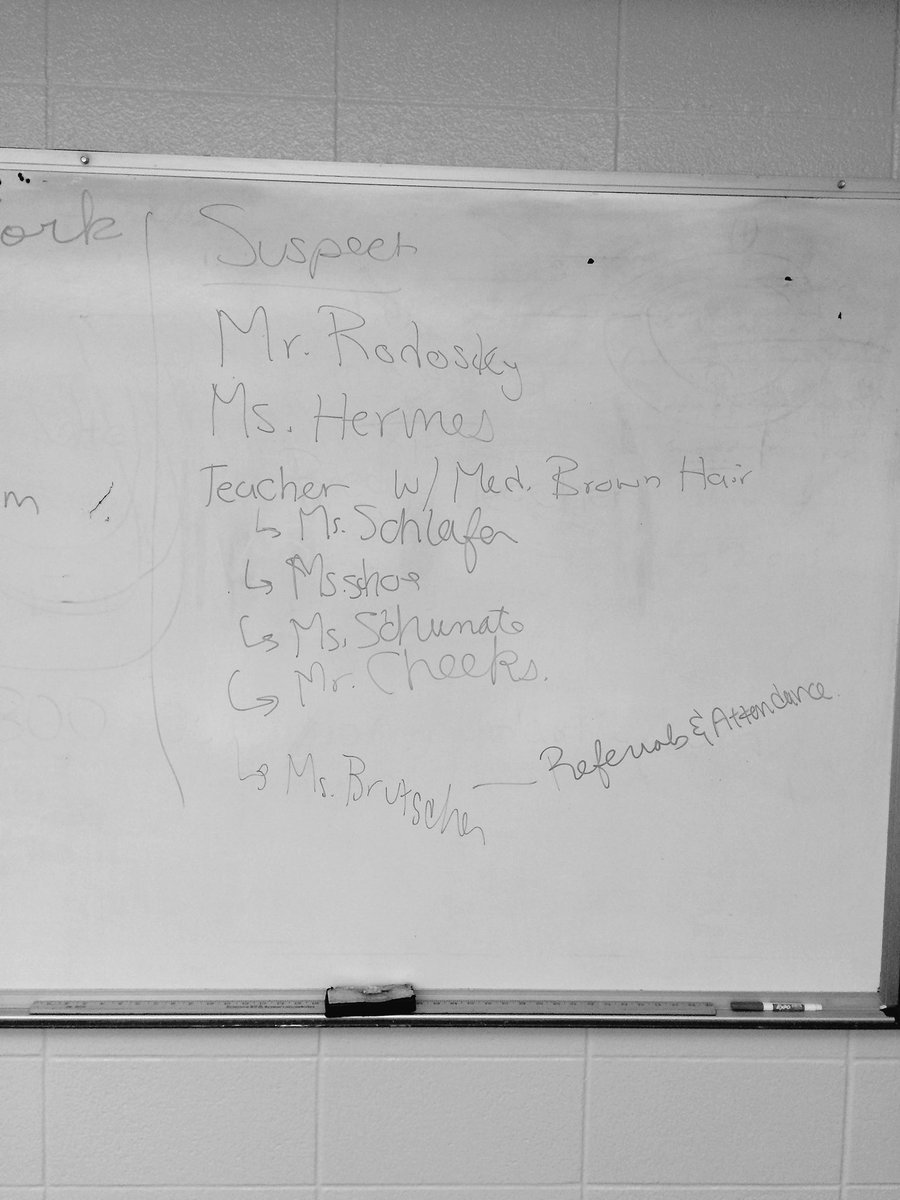 ork
Suspect
Mr. Rodosky
Ms. Hermes
Teacher w/ Med. Brown Hair
↳ Ms. Schlafer
↳ Ms. Schoe
↳ Ms. Schunato
↳ Mr. Cheeks.
↳ Ms. Brutscher — Referrals & Attendance
m
EXPO